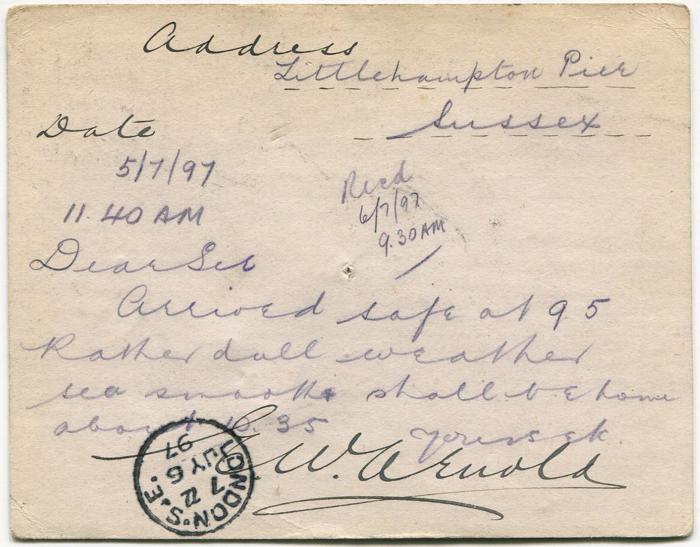 Address
Littlehampton Pier
Sussex
Date
5/7/97
11.40 AM
Recd
6/7/97
9.30 AM
Dear Sir
Arrived safe at 9 5
Rather dull weather
sea smooth shall be home
about 10.35
yours &c.
G W. Arnold
LONDON.S.E.
7 Z
JY 6
97